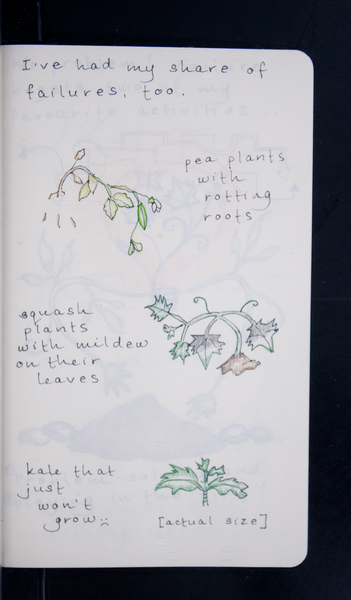 I've had my share of
failures, too.
pea plants
with
rotting
roots
squash
plants
with mildew
on their
leaves
kale that
just
won't
grow :(
[actual size]